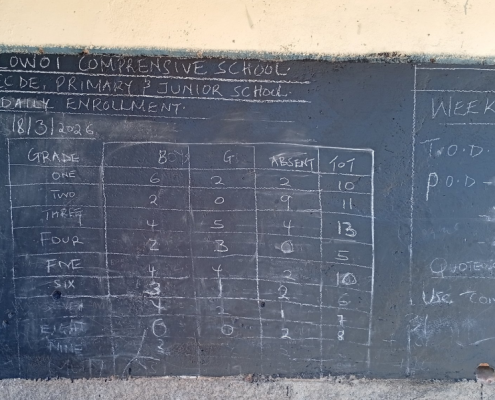 LOWOI COMPRENSIVE SCHOOL.
ECDE, PRIMARY & JUNIOR SCHOOL.
DAILY ENROLLMENT.
18/3/2026
GRADE B G ABSENT TOT
ONE 6 2 2 10
TWO 2 0 9 11
THREE 4 5 4 13
FOUR 2 3 0 5
FIVE 4 4 2 10
SIX 3 1 2 6
4 2 1 7
EIGHT 0 2 8
NINE
WEEK
T.O.D.
P.O.D
QUOTE
Use